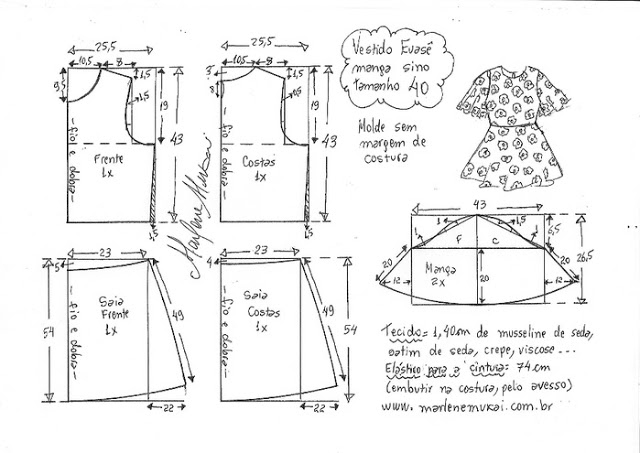 25,5
10,5
8
1,5
9,5
1,5
19
43
fio e dobra
Frente
1x
1,5
25,5
10,5
8
3
8
1,5
19
43
fio e dobra
Costas
1x
1,5
Marlene Mukai
Vestido Evasê
manga sino
tamanho 40
Molde sem
margem de
costura
43
1
1,5
1
1
F
C
6,5
26,5
20
20
12
12
Manga
2x
20
23
5
54
fio e dobra
Saia
Frente
1x
49
22
23
4
fio e dobra
Saia
Costas
1x
49
54
22
Tecido= 1,40cm de musseline de seda,
cetim de seda, crepe, viscose...
Elástico para a cintura= 74cm
(embutir na costura, pelo avesso)
www.marlenemukai.com.br